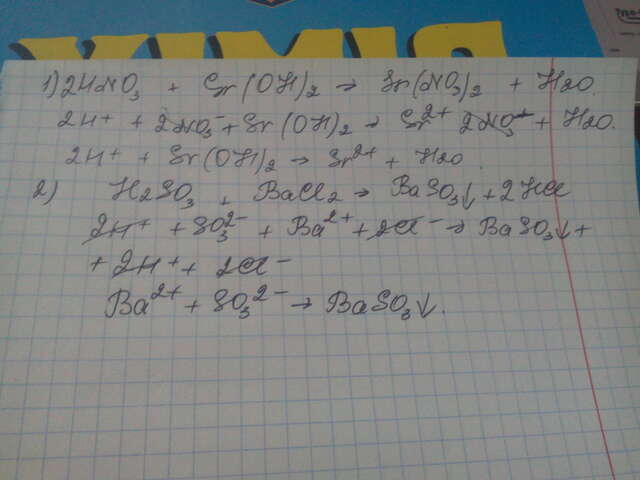 ХІМІЯ
1) 2HNO₃ + Sr(OH)₂ → Sr(NO₃)₂ + H₂O.
2H⁺ + 2NO₃⁻ + Sr(OH)₂ → Sr²⁺ 2NO₃⁻ + H₂O.
2H⁺ + Sr(OH)₂ → Sr²⁺ + H₂O.
2) H₂SO₃ + BaCl₂ → BaSO₃↓ + 2HCl
2H⁺ + SO₃²⁻ + Ba²⁺ + 2Cl⁻ → BaSO₃↓ +
+ 2H⁺ + 2Cl⁻
Ba²⁺ + SO₃²⁻ → BaSO₃↓.